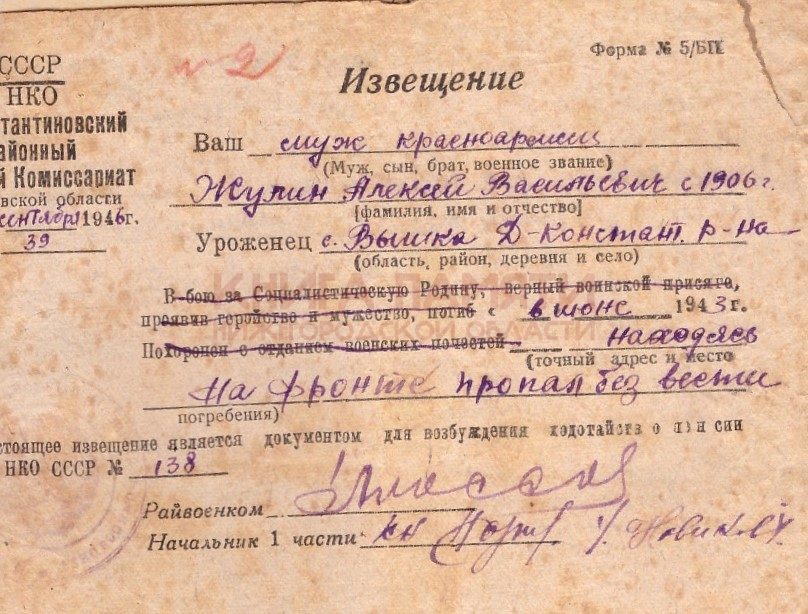 СССР
НКО
тантиновский
айонный
й Комиссариат
вской области
сентября 1946г.
39
№ 2
Форма № 5/БП
Извещение
Ваш муж красноармеец
(Муж, сын, брат, военное звание)
Жулин Алексей Васильевич с 1906 г.
[фамилия, имя и отчество]
Уроженец с. Вышка Д-Констант. р-на
(область, район, деревня и село)
В бою за Социалистическую Родину, верный воинской присяге,
проявив геройство и мужество, погиб « в июне 1943 г.
Похоронен с отданием воинских почестей находясь
(точный адрес и место
На фронте пропал без вести
погребения)
стоящее извещение является документом для возбуждения ходотайств о пенсии
НКО СССР № 138
Райвоенком
Начальник 1 части
КНИГА ПАМЯТИ
НИЖЕГОРОДСКОЙ ОБЛАСТИ